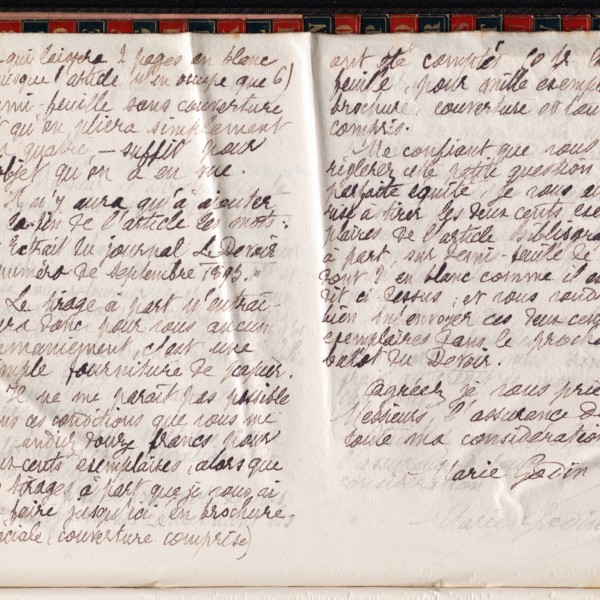 qui laissera 2 pages en blanc
puisque l'article n'en occupe que 6)
demi-feuille sans couverture
et qu'on pliera simplement
en quatre, — suffit pour
l'objet qu'on a en vue.
Il n'y aura qu'à ajouter
à la fin de l'article les mots:
"Extrait du journal Le Devoir
numéro de septembre 1893."
Le tirage à part n'entraî-
nera donc pour vous aucun
remaniement, c'est une
simple fourniture de papier.
Il ne me paraît pas possible
dans ces conditions que vous me
douze francs pour
deux-cents exemplaires, alors que
les tirages à part que je vous ai
fait faire jusqu'ici en brochure
spéciale (couverture comprise)
ont été comptés 60 fr. la
feuille, pour mille exempl
brochure, couverture et tou
compris.
Me confiant que vous
règlerez cette petite question
parfaite équité, je vous au
rise à tirer les deux cents exem
plaires de l'article bibliogra
à part, sur demi-feuille de
dont 2 en blanc comme il est
dit ci dessus; et vous voudr
bien m'envoyer ces deux cents
exemplaires dans le procha
ballot du Devoir.
Agréez je vous prie
Messieurs, l'assurance de
toute ma considération
Marie Godin